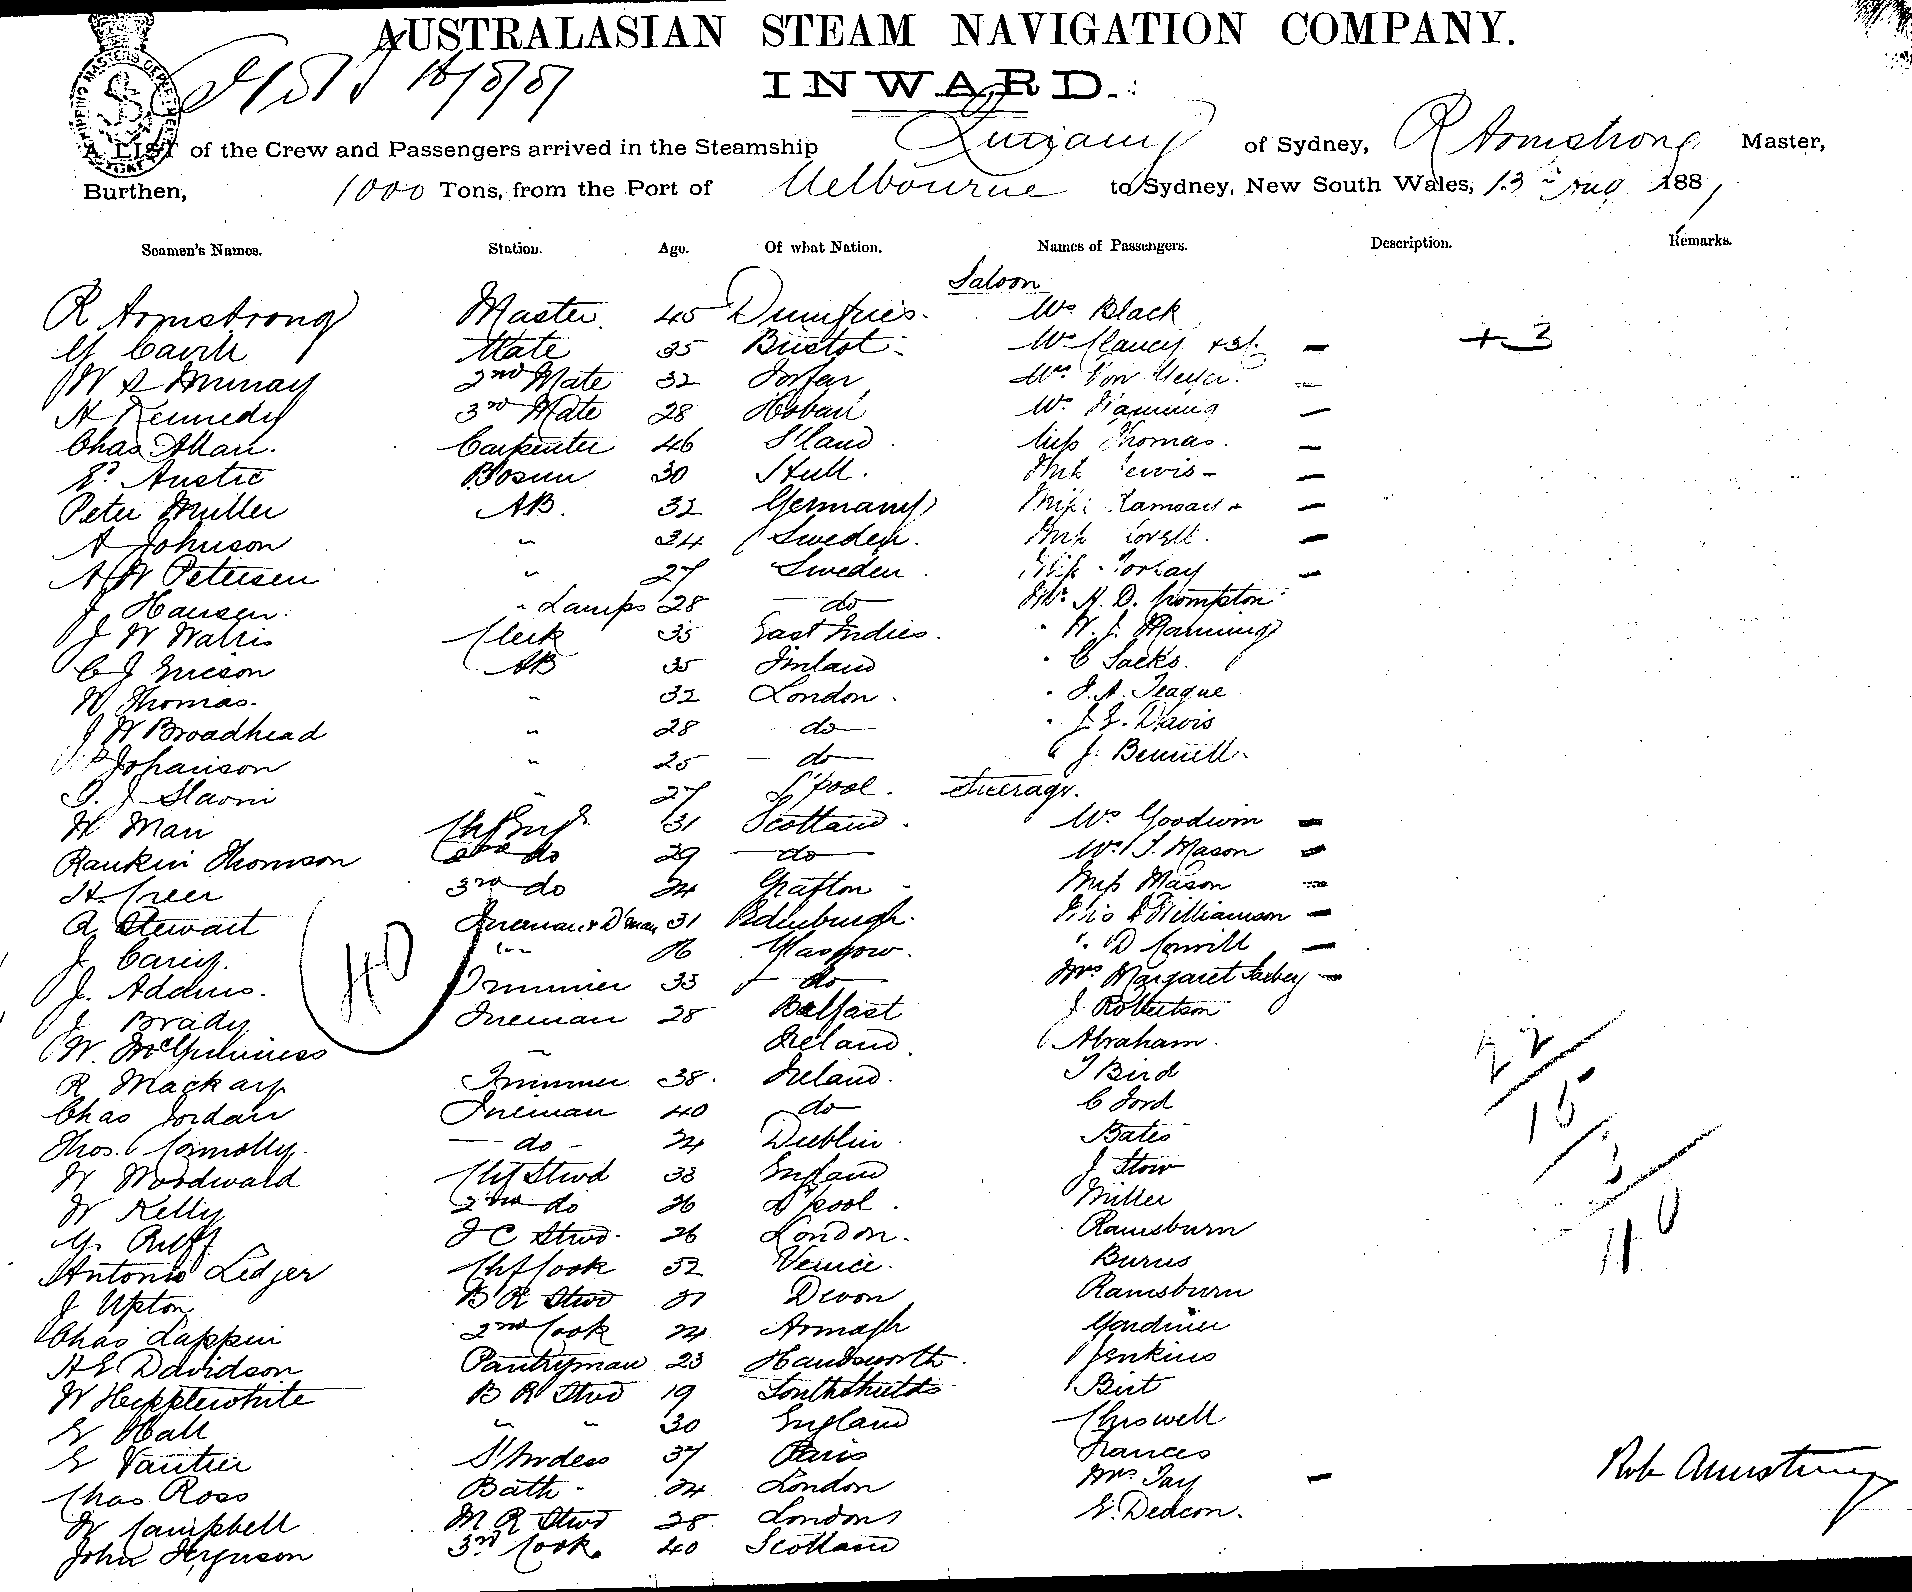 AUSTRALASIAN STEAM NAVIGATION COMPANY.
INWARD.
A LIST of the Crew and Passengers arrived in the Steamship of Sydney, R Armstrong Master,
Burthen, 1000 Tons, from the Port of Melbourne to Sydney, New South Wales, 13 Aug 1881
Seamen's Names. Station. Age. Of what Nation. Names of Passengers. Description. Remarks.
Saloon
R Armstrong Master 45 Dumfries. Mrs Black
Mate 35 Bristol Mrs Clancy + 3
W S Murray 2nd Mate 32 Forfar Mrs Von
H Kennedy 3rd Mate 28 Hobart Mrs Manning
Chas Allan. Carpenter 46 S'land Miss Thomas.
Austic Bosun 30 Hull. Miss Lewis
Peter Muller AB. 32 Germany Miss Ramsay
A Johnson " 34 Sweden. Miss Lovell.
A W Petersen " 27 Sweden Miss
J. Hansen. " Lamps 28 do Mr. H. D. Crompton
J W Watris Clerk 35 East Indies. " W. J. Manning
C J Ericson AB 35 Finland " C Sacks.
W Thomas. " 32 London. " J. A. Teague
J W Broadhead " 28 do " J. E. Davis
Johanson " 25 do " J. Bennett.
27 L'pool. Steerage.
H Man Chf Engr 31 Scotland. Mrs Goodwin
Rankin Thomson 2nd do 29 do Mrs J. Mason
H. Creer 3rd do 24 Grafton Miss Mason
A. Stewart Fireman & D'man 31 Edenburgh. Williamson
J. Carey. " 16 Glasgow. " D Convill
J. Addins. Trimmer 33 do Mrs Margaret Saxbey
J Brady Fireman 28 Belfast J Robertson
W. McGuiness " Ireland Abraham.
R Mackay Trimmer 38. Ireland. T Bird
Chas Jordan Fireman 40 do C Ford
Thos. Connolly. do 24 Dublin Bates
W Woodwald Chf Stwd 33 England J Stow
W Kelly 2nd do 26 L'pool. Miller
G. Ruff F C Stwd. 26 London. Ramsburn
Antonio Ledger Chf Cook 52 Venice. Burns
J Upton B R Stwd 31 Devon Ramsburn
Chas Lappin 2nd Cook 24 Armagh Gardiner
A E Davidson Pantryman 23 Handsworth. Jenkins
W Hepplewhite B R Stwd 19 Southshields Birt
E Hall " " 30 England Chiswell
E Vautier S'tewdess 37 Paris Frances
Chas Ross Bath 24 London Mrs Jay
W Campbell M R Stwd 28 London E. Deacon.
John Ferguson 3rd Cook. 40 Scotland
40
22
15
3
40
Rob Armstrong